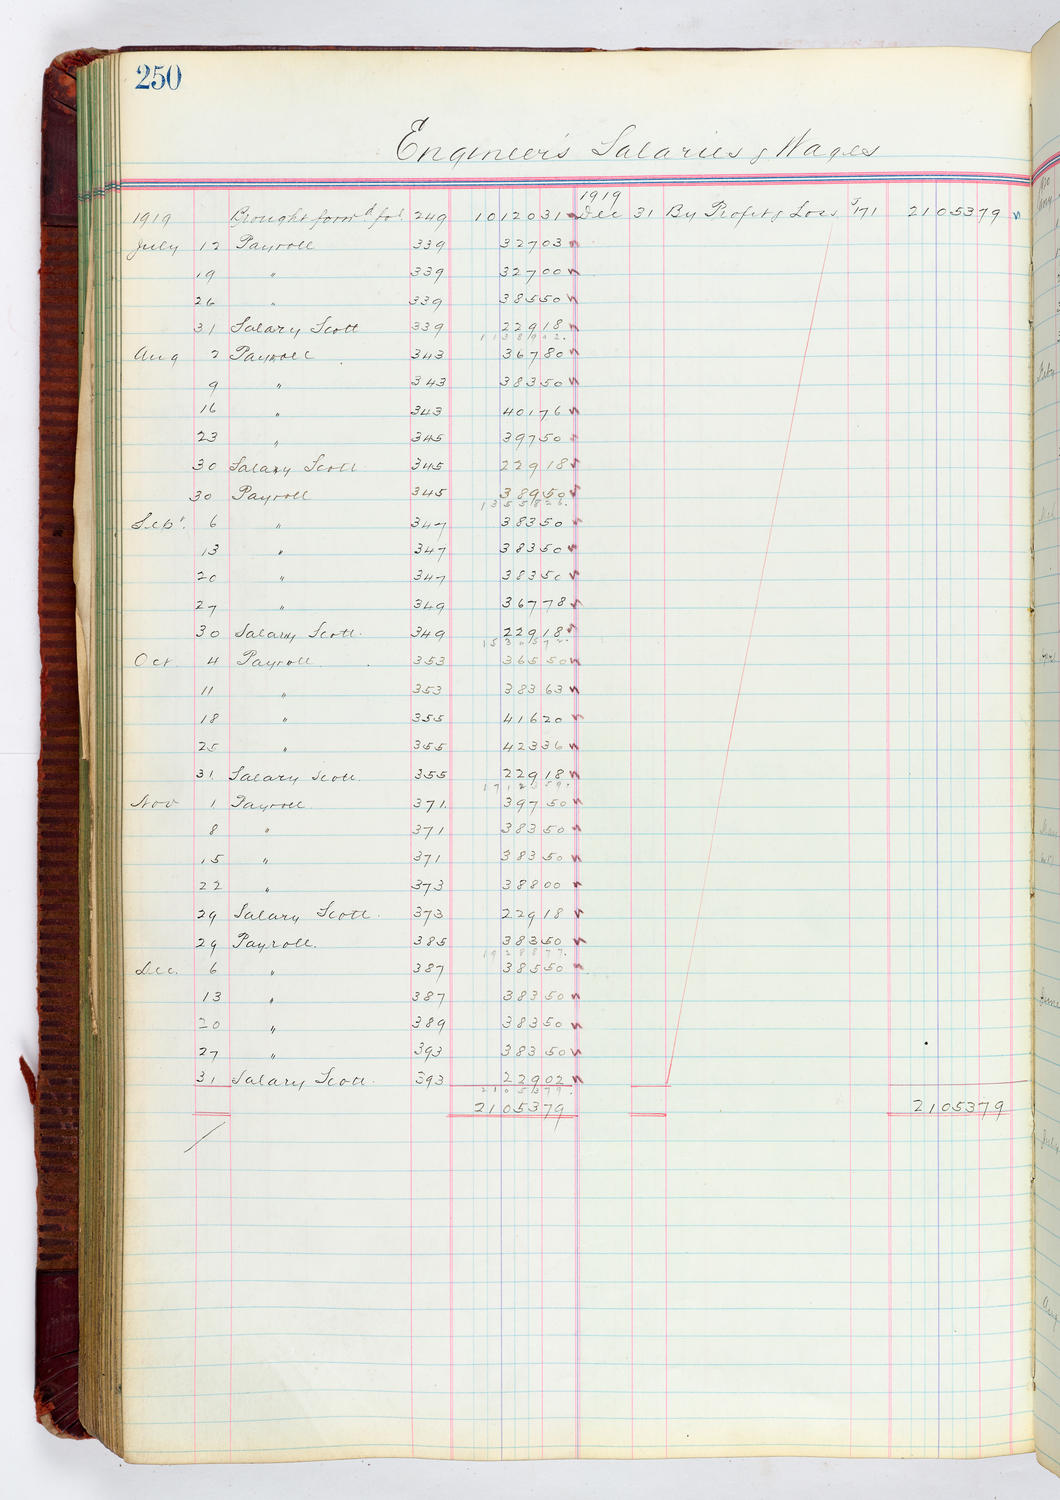 250
Engineer's Salaries & Wages
1919 Brought forw'd fol 249 1012031 1919 Dec 31 By Profit & Loss J171 2105379
July 12 Payroll 339 32703
19 " 339 32700
26 " 339 38550
31 Salary Scott 339 22918
1138902.
Aug 2 Payroll 343 36780
9 " 343 38350
16 " 343 40176
23 " 345 39750
30 Salary Scott 345 22918
30 Payroll 345 38950
1355826.
Sep't. 6 " 347 38350
13 " 347 38350
20 " 347 38350
27 " 349 36778
30 Salary Scott. 349 22918
1530572.
Oct. 4 Payroll 353 36550
11 " 353 38363
18 " 355 41620
25 " 355 42336
31. Salary Scott. 355 22918
1712359.
Nov 1 Payroll. 371. 39750
8 " 371 38350
15 " 371 38350
22 " 373 38800
29 Salary Scott. 373 22918
29 Payroll. 385 38350
1928877.
Dec. 6 " 387 38550
13 " 387 38350
20 " 389 38350
27 " 393 38350
31 Salary Scott. 393 22902
2105379.
2105379 2105379